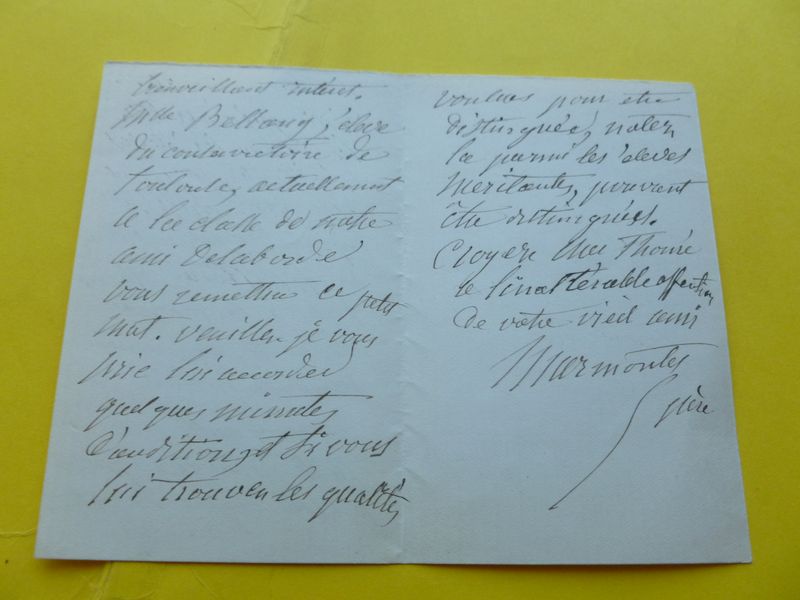 bienveillant intérêt.
Mlle élève
du conservatoire de
Toulouse, actuellement
de la classe de notre
ami Delaborde
vous remettra ce petit
mot. veuillez je vous
prie lui accorder
quelques minutes
d'audition, et si vous
lui trouvez les qualités
voulues pour être
distinguée, notez
la parmi les élèves
méritantes, pouvant
être distinguées.
Croyez cher Thomé
à l'inaltérable affection
de votre vieil ami
Marmontel
père